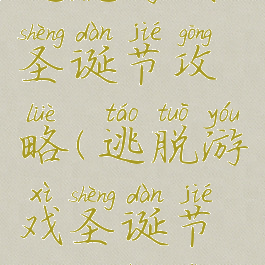 shèng dàn jié gōng
圣诞节攻
lüè táo tuō yóu
略(逃脱游
xì shèng dàn jié
戏圣诞节